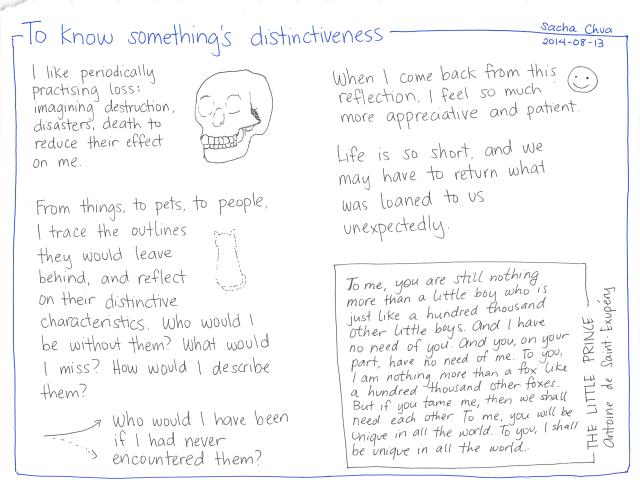 To know something's distinctiveness
Sacha Chua
2014-08-13
I like periodically
practising loss:
imagining destruction,
disasters, death to
reduce their effect
on me.
From things, to pets, to people,
I trace the outlines
they would leave
behind, and reflect
on their distinctive
characteristics. Who would I
be without them? What would
I miss? How would I describe
them?
Who would I have been
if I had never
encountered them?
When I come back from this
reflection, I feel so much
more appreciative and patient.
Life is so short, and we
may have to return what
was loaned to us
unexpectedly.
To me, you are still nothing
more than a little boy who is
just like a hundred thousand
other little boys. And I have
no need of you. And you, on your
part, have no need of me. To you,
I am nothing more than a fox like
a hundred thousand other foxes.
But if you tame me, then we shall
need each other. To me, you will be
unique in all the world. To you, I shall
be unique in all the world..
THE LITTLE PRINCE
Antoine de Saint-Exupéry